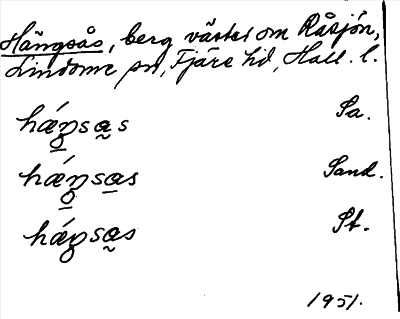 Hängsås, berg väster om Råsjön,
Lindome sn, Fjäre hd, Hall. l.
hǽŋsa̰s Sa.
hǽŋsa̱s Sand.
hǽŋsa̰s St.
1951.